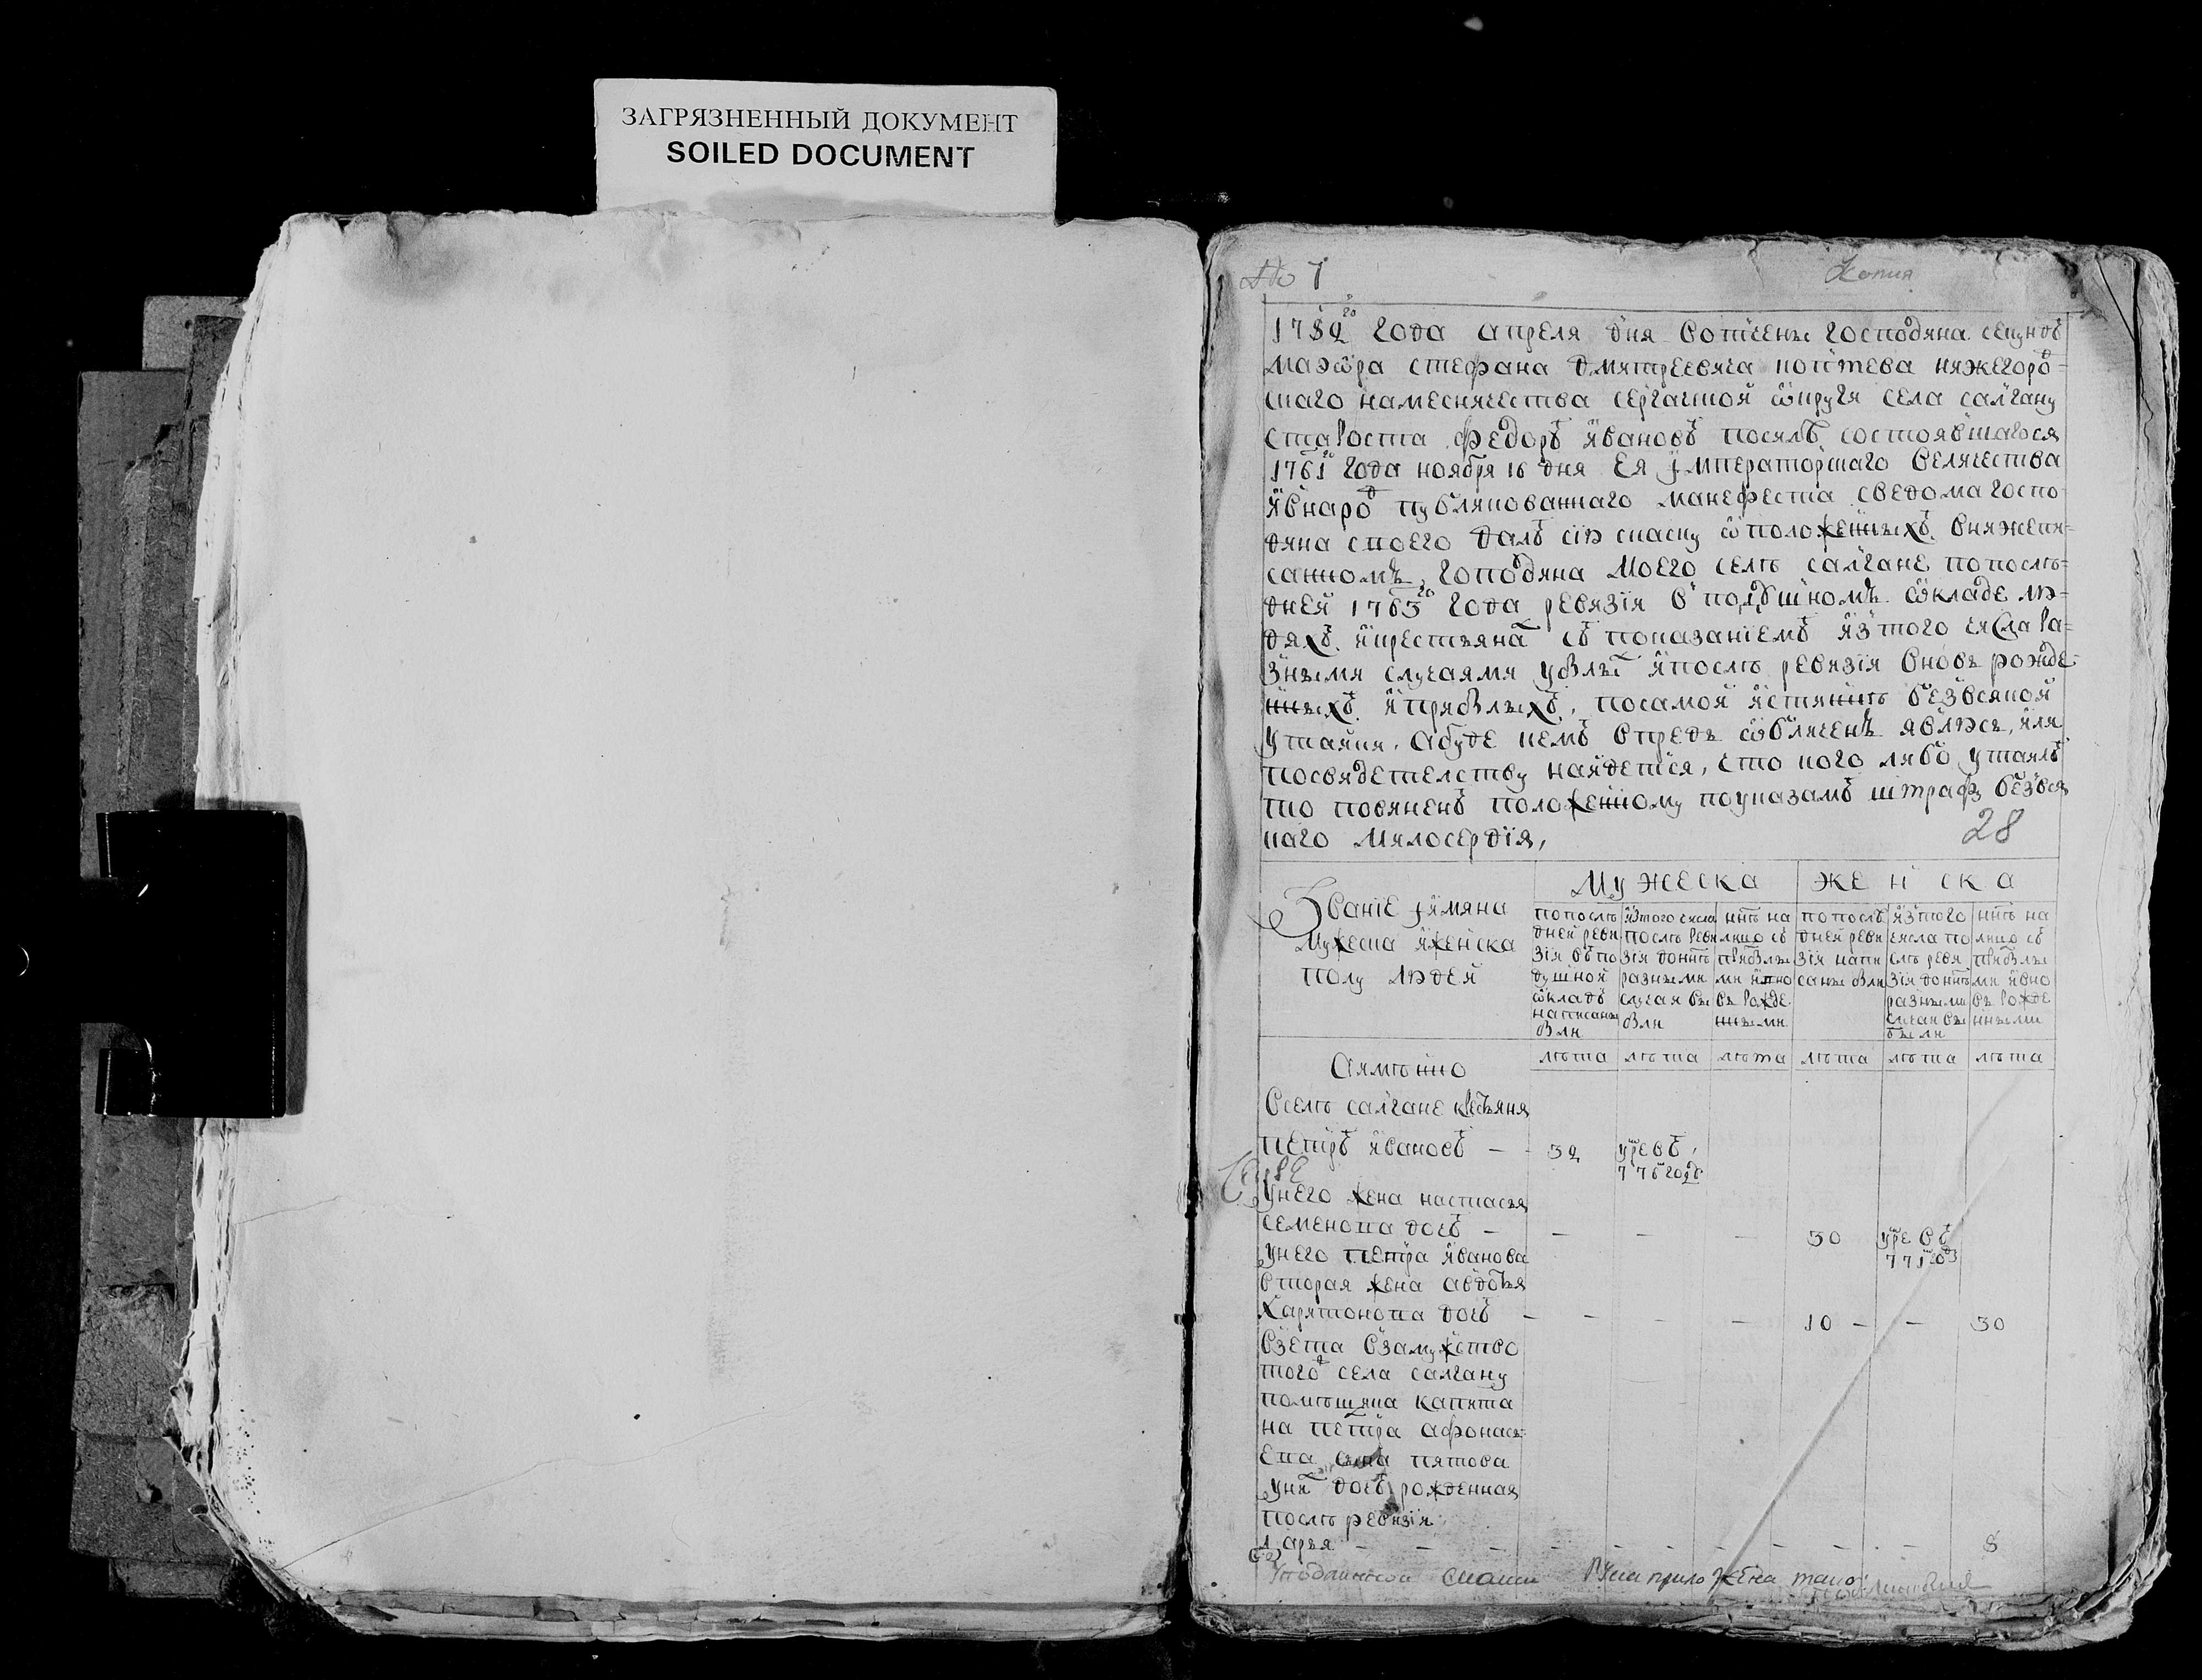 ЗАГРЯЗНЕННЫЙ ДОКУМЕНТ
SOILED DOCUMENT
№ 7
Копия
1782го года апреля дня вотчены господина секундъ
маэора стефана дмитреевича нижегоро=
скаго намесничества сергачкой округи села салгану
староста федоръ ивановъ посилѣ состоявшагося
1781го года ноября 16 дня ея императорскаго величества
ивнарод публикованнаго манефеста сведома госпо
дина своего далъ сию скаску о положенныхъ внижепи=
санномъ, гоподина моего селѣ салгане попослѣ=
дней 1763го года ревизіи в подушномъ окладе лю=
дяхъ икрестьянах съ показаниемъ изтого числа ра=
зными случаями убылых ипослѣ ревизіи вновь рожде
нныхъ иприбылыхъ, посамой истиннѣ безвсякой
утайки, абуде кемъ впредь обличенъ явлюсь, или
посвидетелству найдется, что кого либо утаилъ
то повиненъ положенному поуказамъ штрафу безвся
каго милосердія,
28
Званіе имяна
мужеска иженска
полу людей
Мужеска
женска
попослѣ
дней реви
зіи въпо
душной
окладъ
написаны
были
изтого числа
послѣ реви
зіи донне
разными
случаи вы
были
нне на
лицо съ
прибылы
ми ивно
вь рожде
нными
попослѣ
дней реви
зіи напи
саны были
изтого
числа по
слѣ реви
зіи донне
разными
случаи вы
были
нне на
лицо съ
прибылы
ми ивно
вь рожде
нными
лѣта лѣта лѣта лѣта лѣта лѣта
Аимѣнно
Вселѣ салгане крестьяня
петръ ивановъ — 32 умре въ
776 годѣ
Унего жена настасья
семенова дочь — — — — 30 умре въ
771 годѣ
унего петра иванова
вторая жена авдотья
харитонова дочь — — — — 10 — — 30
взета взамужство
тогож села салгану
помѣщика капита
на петра афонась
ева сна пятова
уних дочь рожденная
послѣ ревизіи
дарья — — — — — — — — 8
скаски рука приложена тако